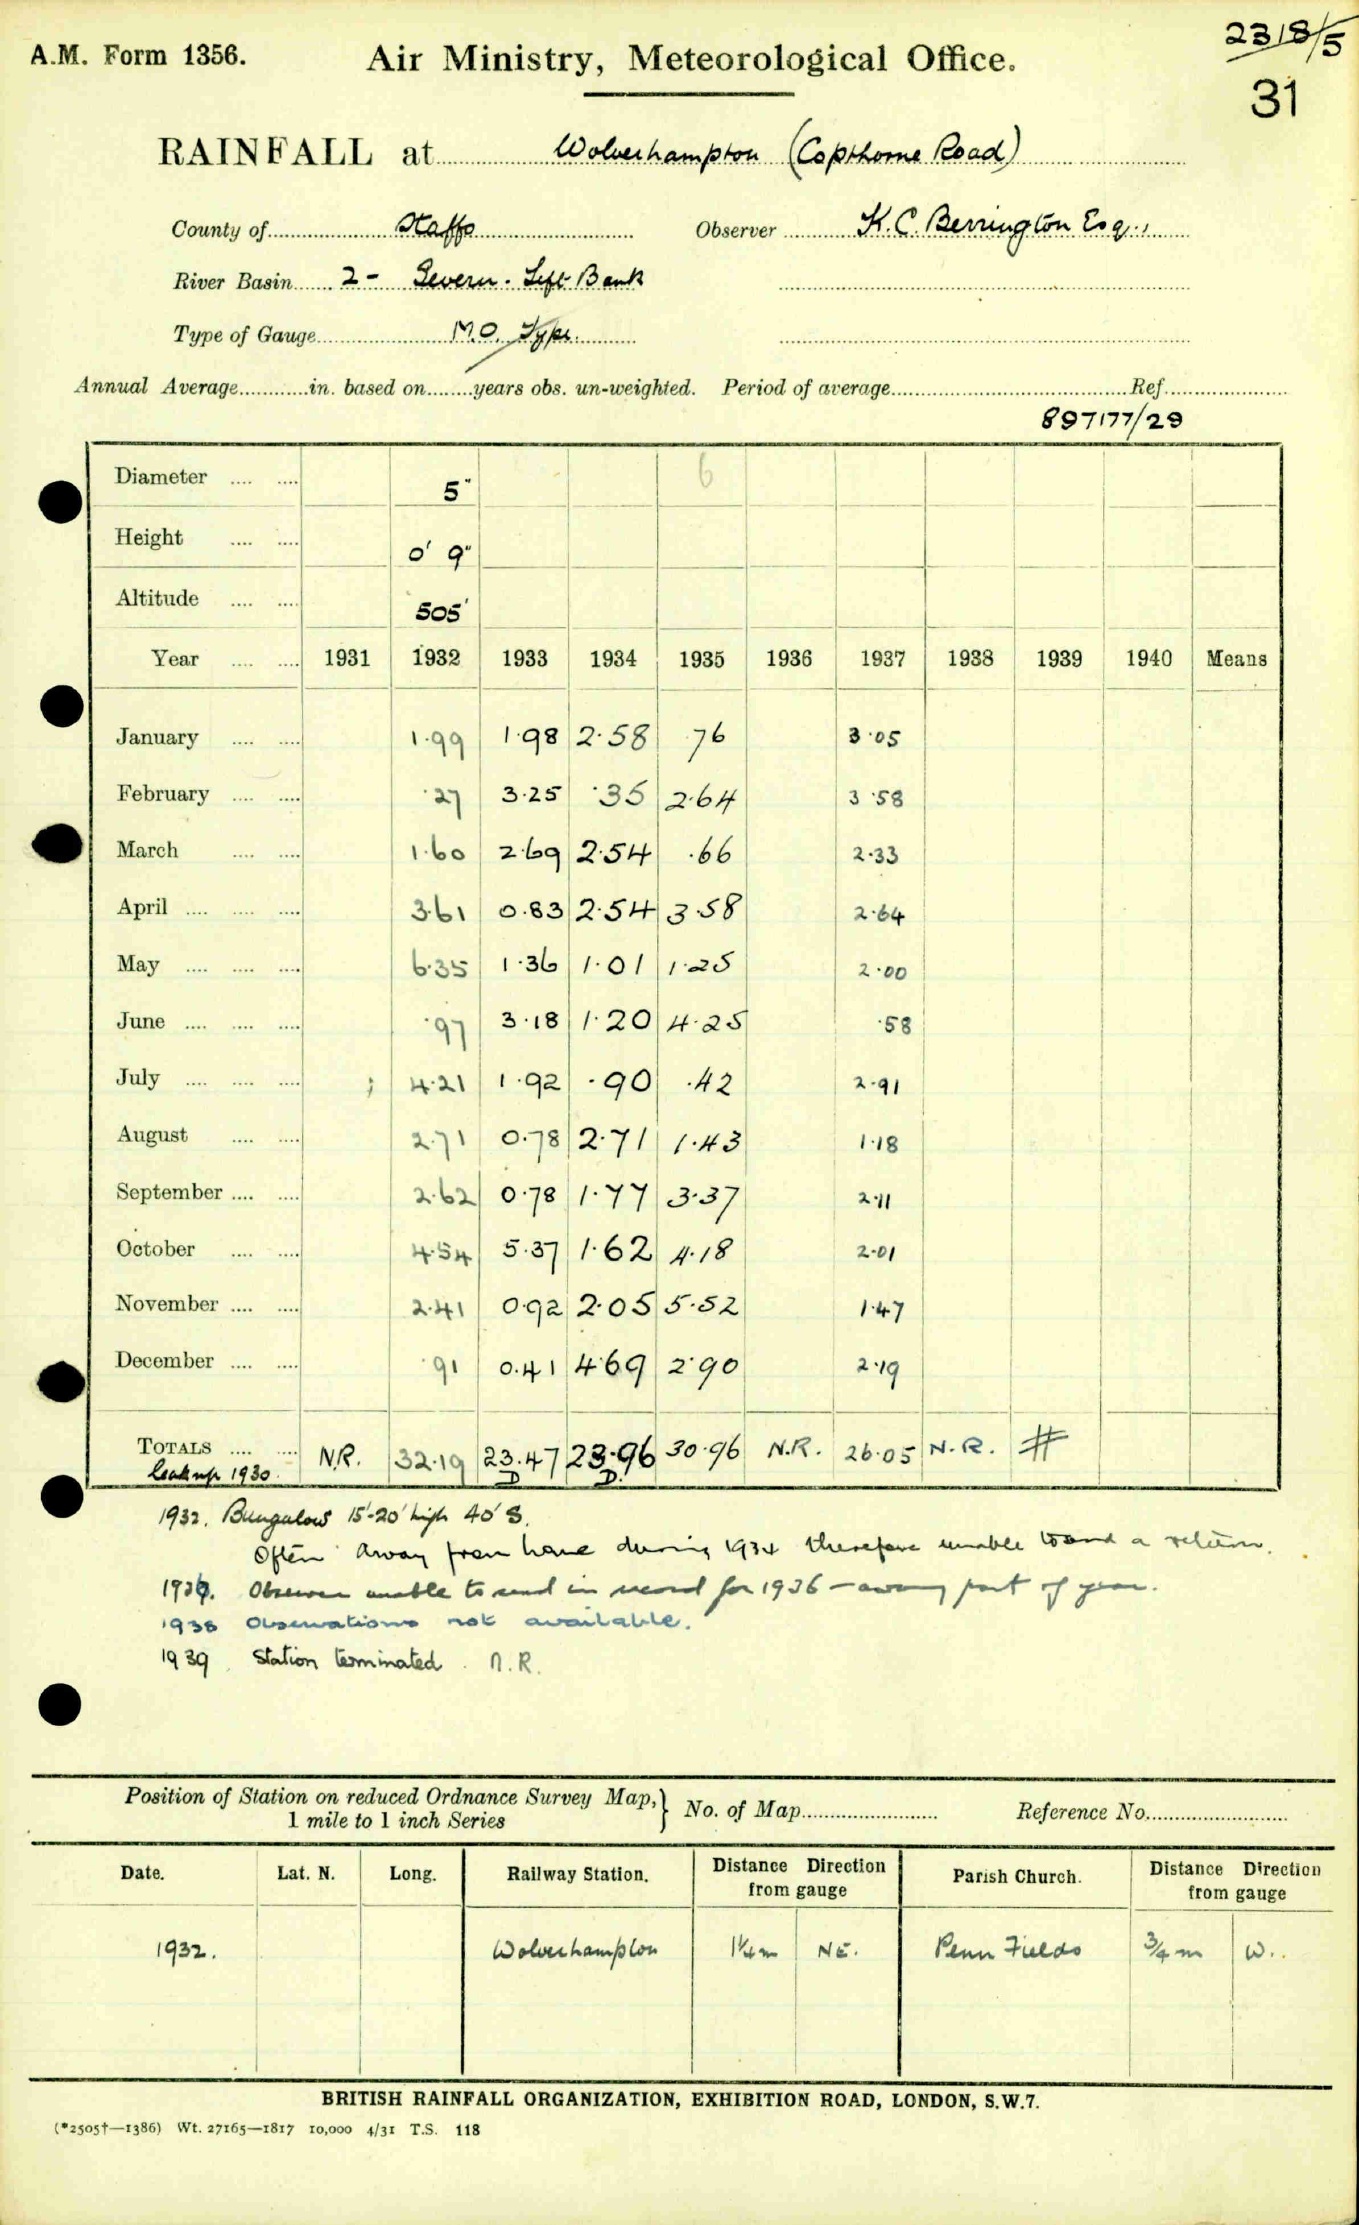 2318/5
A.M. Form 1356. Air Ministry, Meteorological Office.
31
RAINFALL at Wolverhampton (Copthorne Road)
County of Staffs Observer K. C. Berrington Esq.,
River Basin 2 - Severn. Left Bank
Type of Gauge M.O. Type.
Annual Average in. based on years obs. un-weighted. Period of average Ref.
897177/29
Diameter 5" 6
Height 0' 9"
Altitude 505'
Year 1931 1932 1933 1934 1935 1936 1937 1938 1939 1940 Means
January 1.99 1.98 2.58 .76 3.05
February .27 3.25 .35 2.64 3.58
March 1.60 2.69 2.54 .66 2.33
April 3.61 0.83 2.54 3.58 2.64
May 6.35 1.36 1.01 1.25 2.00
June .97 3.18 1.20 4.25 .58
July 4.21 1.92 .90 .42 2.91
August 2.71 0.78 2.71 1.43 1.18
September 2.62 0.78 1.77 3.37 2.11
October 4.54 5.37 1.62 4.18 2.01
November 2.41 0.92 2.05 5.52 1.47
December .91 0.41 4.69 2.90 2.19
TOTALS N.R. 32.19 23.47 23.96 30.96 N.R. 26.05 N.R. #
1930 D D.
1932. Bungalow 15'-20' high 40' S.
Often away from home during 1934 therefore unable to send a return.
1936. Observer unable to send in record for 1936 - away part of year.
1938 Observations not available.
1939. Station terminated. N.R.
Position of Station on reduced Ordnance Survey Map, } No. of Map Reference No.
1 mile to 1 inch Series
Date. Lat. N. Long. Railway Station. Distance Direction from gauge Parish Church. Distance Direction from gauge
1932. Wolverhampton 1¼m NE. Penn Fields ¾m W.
BRITISH RAINFALL ORGANIZATION, EXHIBITION ROAD, LONDON, S.W.7.
(*2505†—1386) Wt. 27165—1817 10,000 4/31 T.S. 118